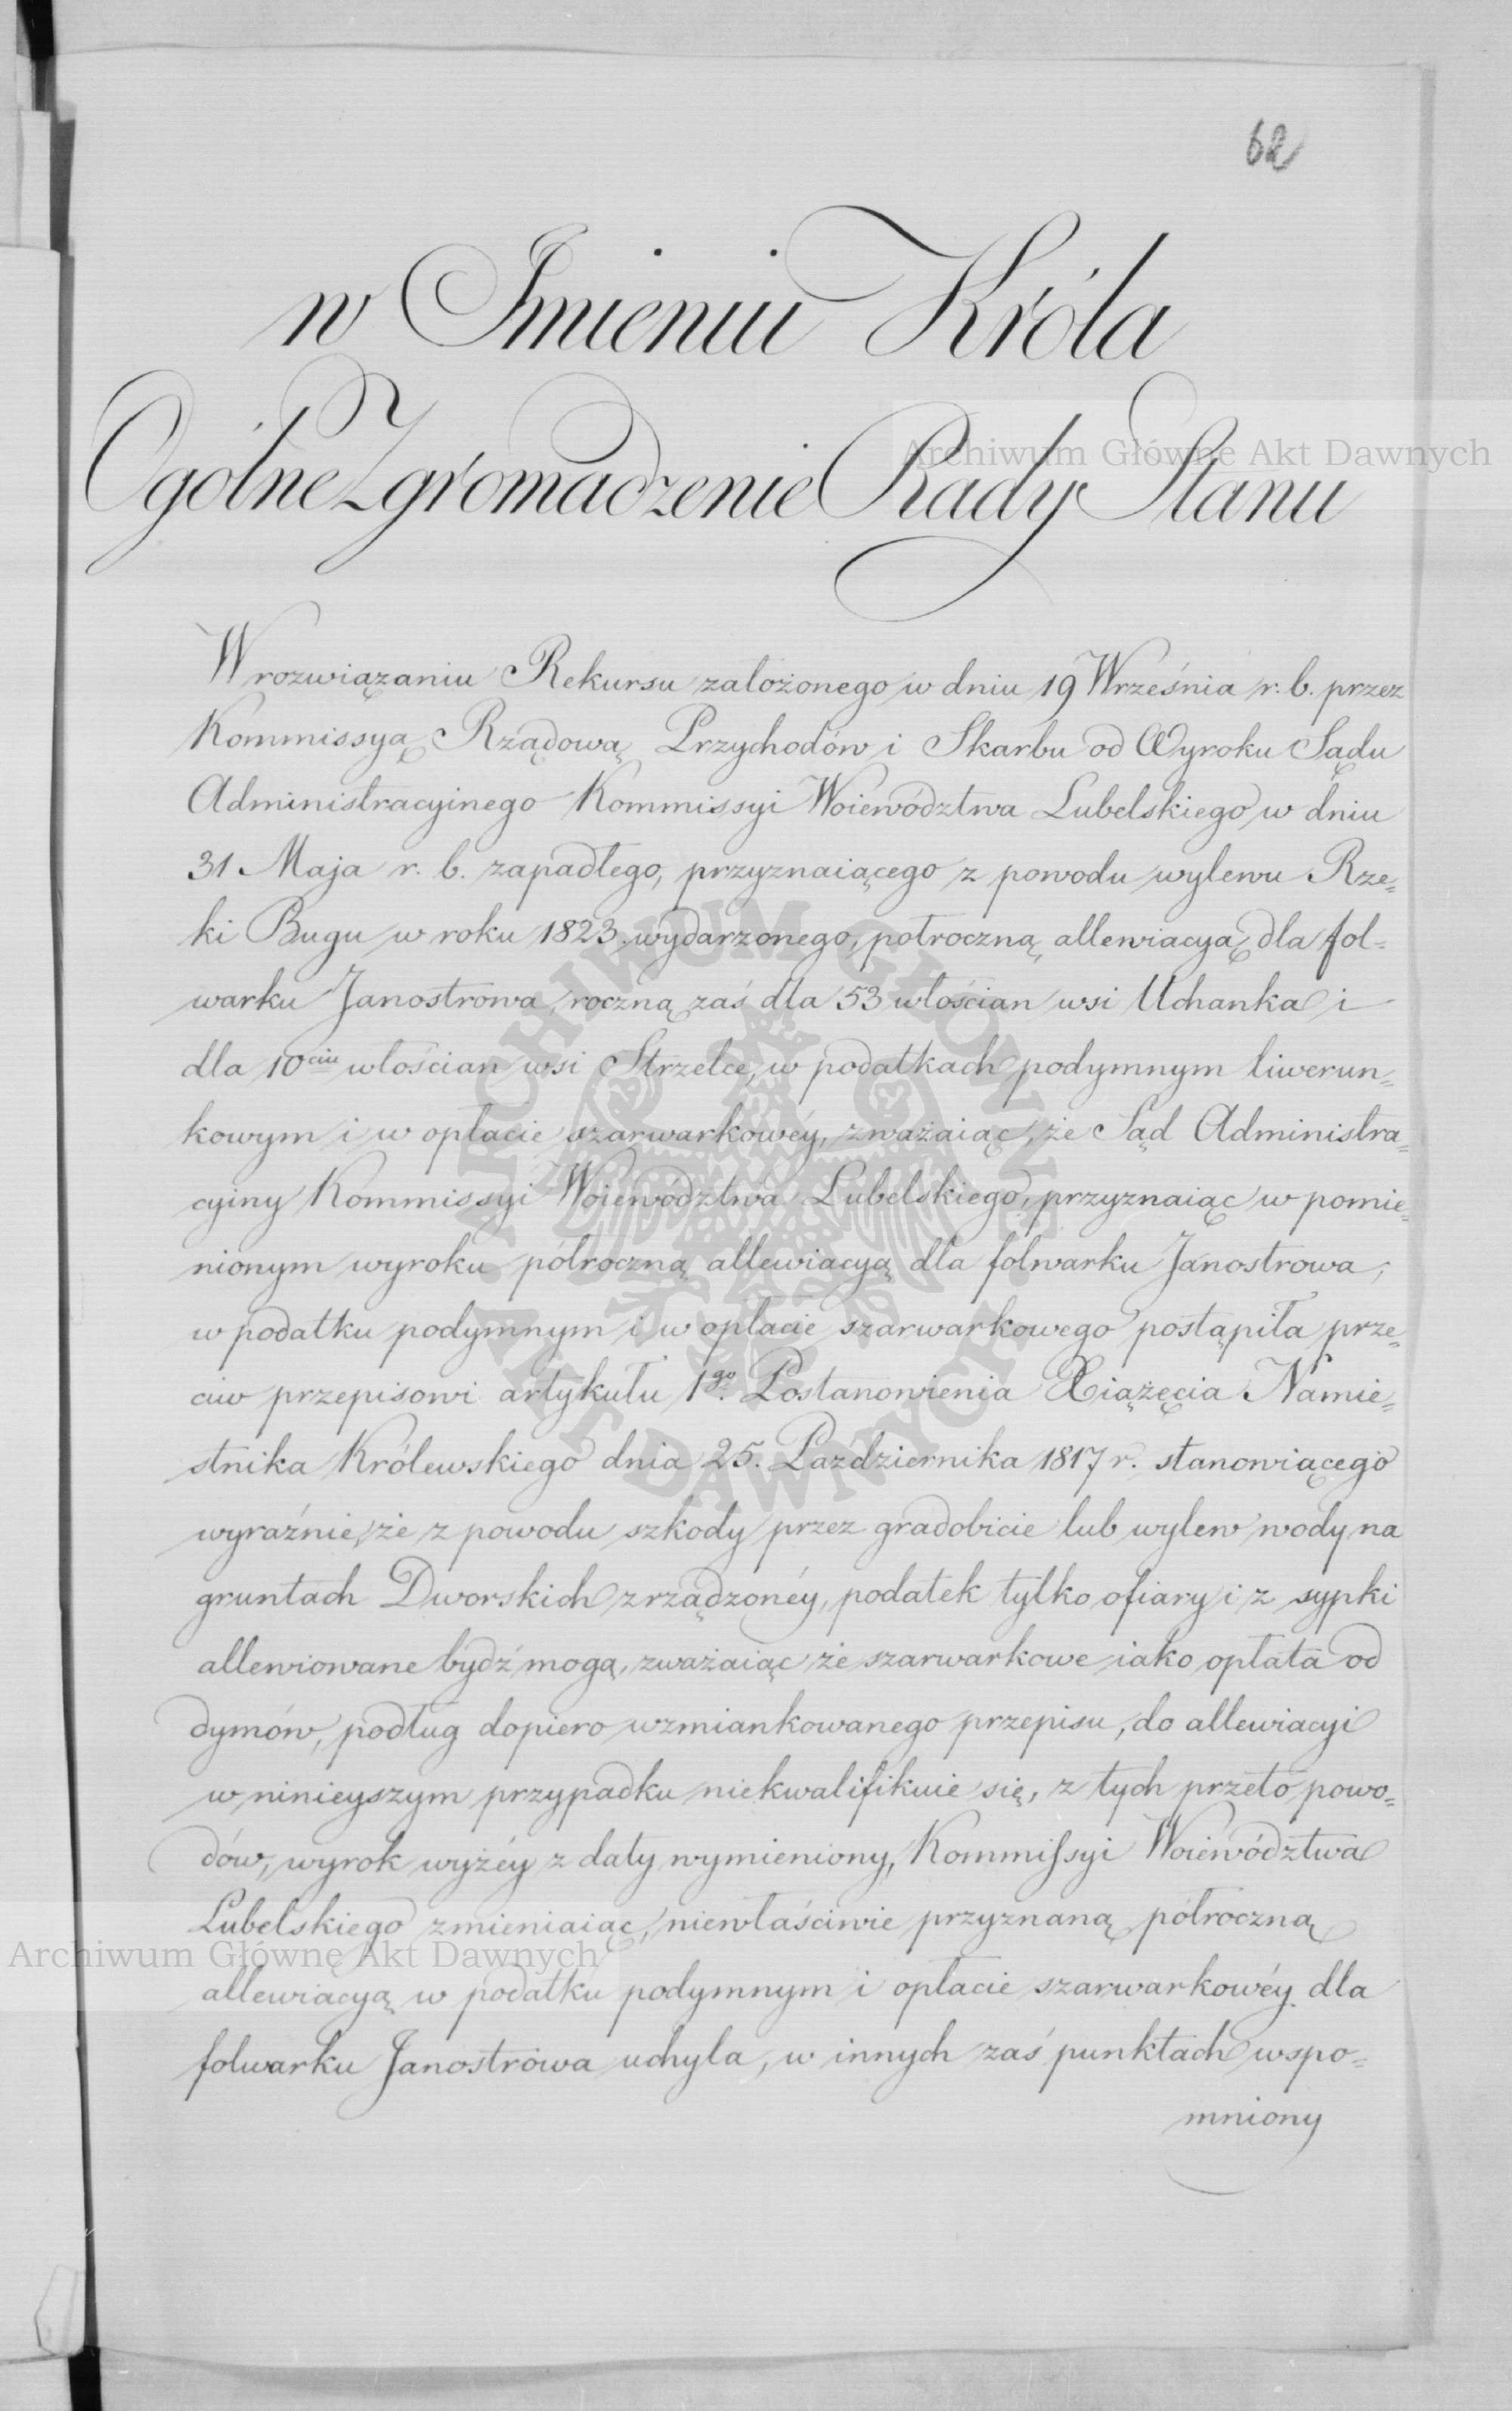 62
w Imieniu Króla
Ogólne Zgromadzenie Rady Stanu
W rozwiązaniu Rekursu założonego w dniu 19 Września r. b. przez
Kommissyą Rządową Przychodów i Skarbu od Wyroku Sądu
Administracyinego Kommissyi Woiewództwa Lubelskiego w dniu
31 Maja r. b. zapadłego, przyznaiącego z powodu wylewu Rze=
ki Bugu w roku 1823. wydarzonego, półroczną allewiacyą dla fol=
warku Janostrowa, roczną zaś dla 53 włościan wsi Uchanka i
dla 10ciu włościan wsi Strzelce, w podatkach podymnym liwerun=
kowym i w opłacie szarwarkowéy, zważaiąc, że Sąd Administra=
cyiny Kommissyi Woiewództwa Lubelskiego, przyznaiąc w pomie=
nionym wyroku półroczną allewiacyą dla folwarku Janostrowa,
w podatku podymnym i w opłacie szarwarkowego postąpiła prze=
ciw przepisowi artykułu 1go. Postanowienia Xiążęcia Namie=
stnika Królewskiego dnia 25. Października 1817 r. stanowiącego
wyraźnie, że z powodu szkody przez gradobicie lub wylew wody na
gruntach Dworskich zrządzonéy, podatek tylko ofiary i z sypki
allewiowane bydź mogą, zważaiąc że szarwarkowe iako opłata od
dymów, podług dopiero wzmiankowanego przepisu, do allewiacyi
w ninieyszym przypadku niekwalifikuie się, z tych przeto powo=
dów, wyrok wyżéy z daty wymieniony, Kommissyi Woiewództwa
Lubelskiego zmieniaiąc, niewłaściwie przyznaną półroczną
allewiacyą w podatku podymnym i opłacie szarwarkowéy dla
folwarku Janostrowa uchyla, w innych zaś punktach wspo=
mniony
Archiwum Główne Akt Dawnych
ARCHIWUM GŁÓWNE AKT DAWNYCH
Archiwum Główne Akt Dawnych